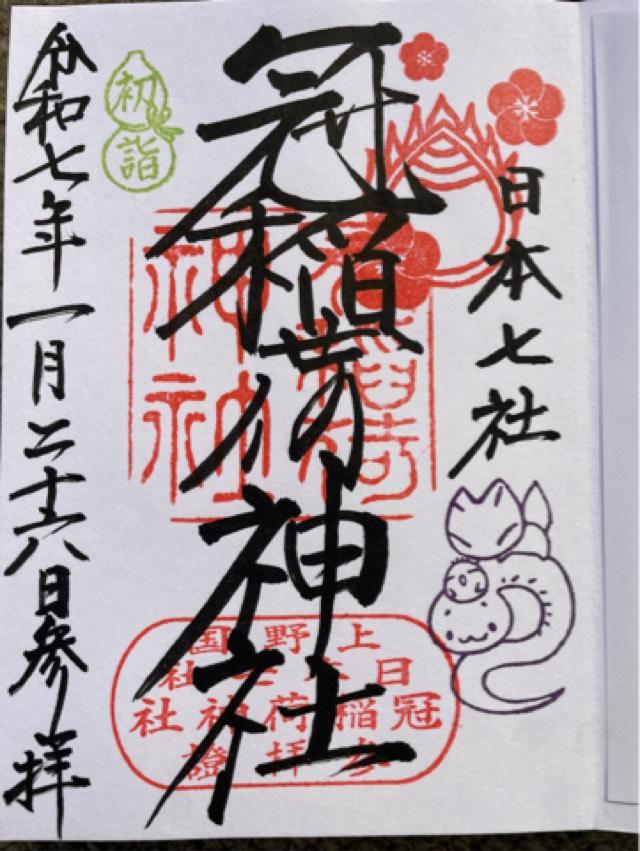 日本七社
冠稲荷神社
令和七年一月二十六日参拝
初詣
冠稲荷
神社
上野国
日本七社
冠稲荷神社
参拝證